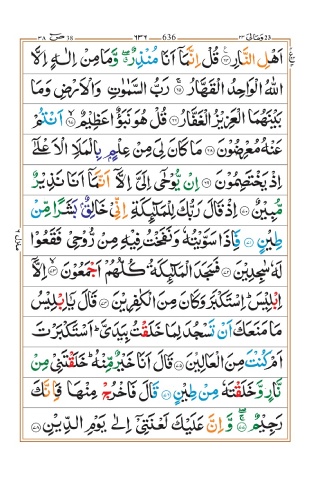 ص ٣٨ ٦٣٢ 636 ومالی ٢٣
اَهْلِ النَّارِ ۟ قُلْ اِنَّمَاۤ اَنَا مُنْذِرٌ ۖۗ وَّمَا مِنْ اِلٰهٍ اِلَّا
اللّٰهُ الْوَاحِدُ الْقَهَّارُ ۚ۝٦٥ رَبُّ السَّمٰوٰتِ وَالْاَرْضِ وَمَا
بَيْنَهُمَا الْعَزِيْزُ الْغَفَّارُ ۝٦٦ قُلْ هُوَ نَبَؤٌا عَظِيْمٌ ۙ۝٦٧ اَنْتُمْ
عَنْهُ مُعْرِضُوْنَ ۝٦٨ مَا كَانَ لِيَ مِنْ عِلْمٍۭ بِالْمَلَاِ الْاَعْلٰۤى
اِذْ يَخْتَصِمُوْنَ ۝٦٩ اِنْ يُّوْحٰۤى اِلَيَّ اِلَّاۤ اَنَّمَاۤ اَنَا نَذِيْرٌ
مُّبِيْنٌ ۝٧٠ اِذْ قَالَ رَبُّكَ لِلْمَلٰٓئِكَةِ اِنِّيْ خَالِقٌۢ بَشَرًا مِّنْ
طِيْنٍ ۝٧١ فَاِذَا سَوَّيْتُهٗ وَنَفَخْتُ فِيْهِ مِنْ رُّوْحِيْ فَقَعُوْا
لَهٗ سٰجِدِيْنَ ۝٧٢ فَسَجَدَ الْمَلٰٓئِكَةُ كُلُّهُمْ اَجْمَعُوْنَ ۙ۝٧٣ اِلَّاۤ
اِبْلِيْسَ ؕ اِسْتَكْبَرَ وَكَانَ مِنَ الْكٰفِرِيْنَ ۝٧٤ قَالَ يٰۤاِبْلِيْسُ
مَا مَنَعَكَ اَنْ تَسْجُدَ لِمَا خَلَقْتُ بِيَدَيَّ ؕ اَسْتَكْبَرْتَ
اَمْ كُنْتَ مِنَ الْعَالِيْنَ ۝٧٥ قَالَ اَنَا خَيْرٌ مِّنْهُ ؕ خَلَقْتَنِيْ مِنْ
نَّارٍ وَّخَلَقْتَهٗ مِنْ طِيْنٍ ۝٧٦ قَالَ فَاخْرُجْ مِنْهَا فَاِنَّكَ
رَجِيْمٌ ۚۖ۝٧٧ وَّاِنَّ عَلَيْكَ لَعْنَتِيْۤ اِلٰى يَوْمِ الدِّيْنِ ۝٧٨